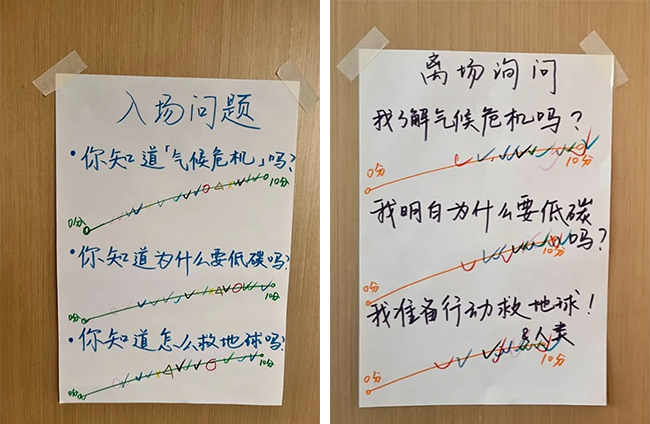 入场问题
•你知道「气候危机」吗?
0分
10分
•你知道为什么要低碳吗?
0分
10分
•你知道怎么救地球吗?
0分
10分
离场询问
我了解气候危机吗?
0分
10分
我明白为什么要低碳
吗?
0分
10分
我准备行动救地球!
&人类
0分
10分